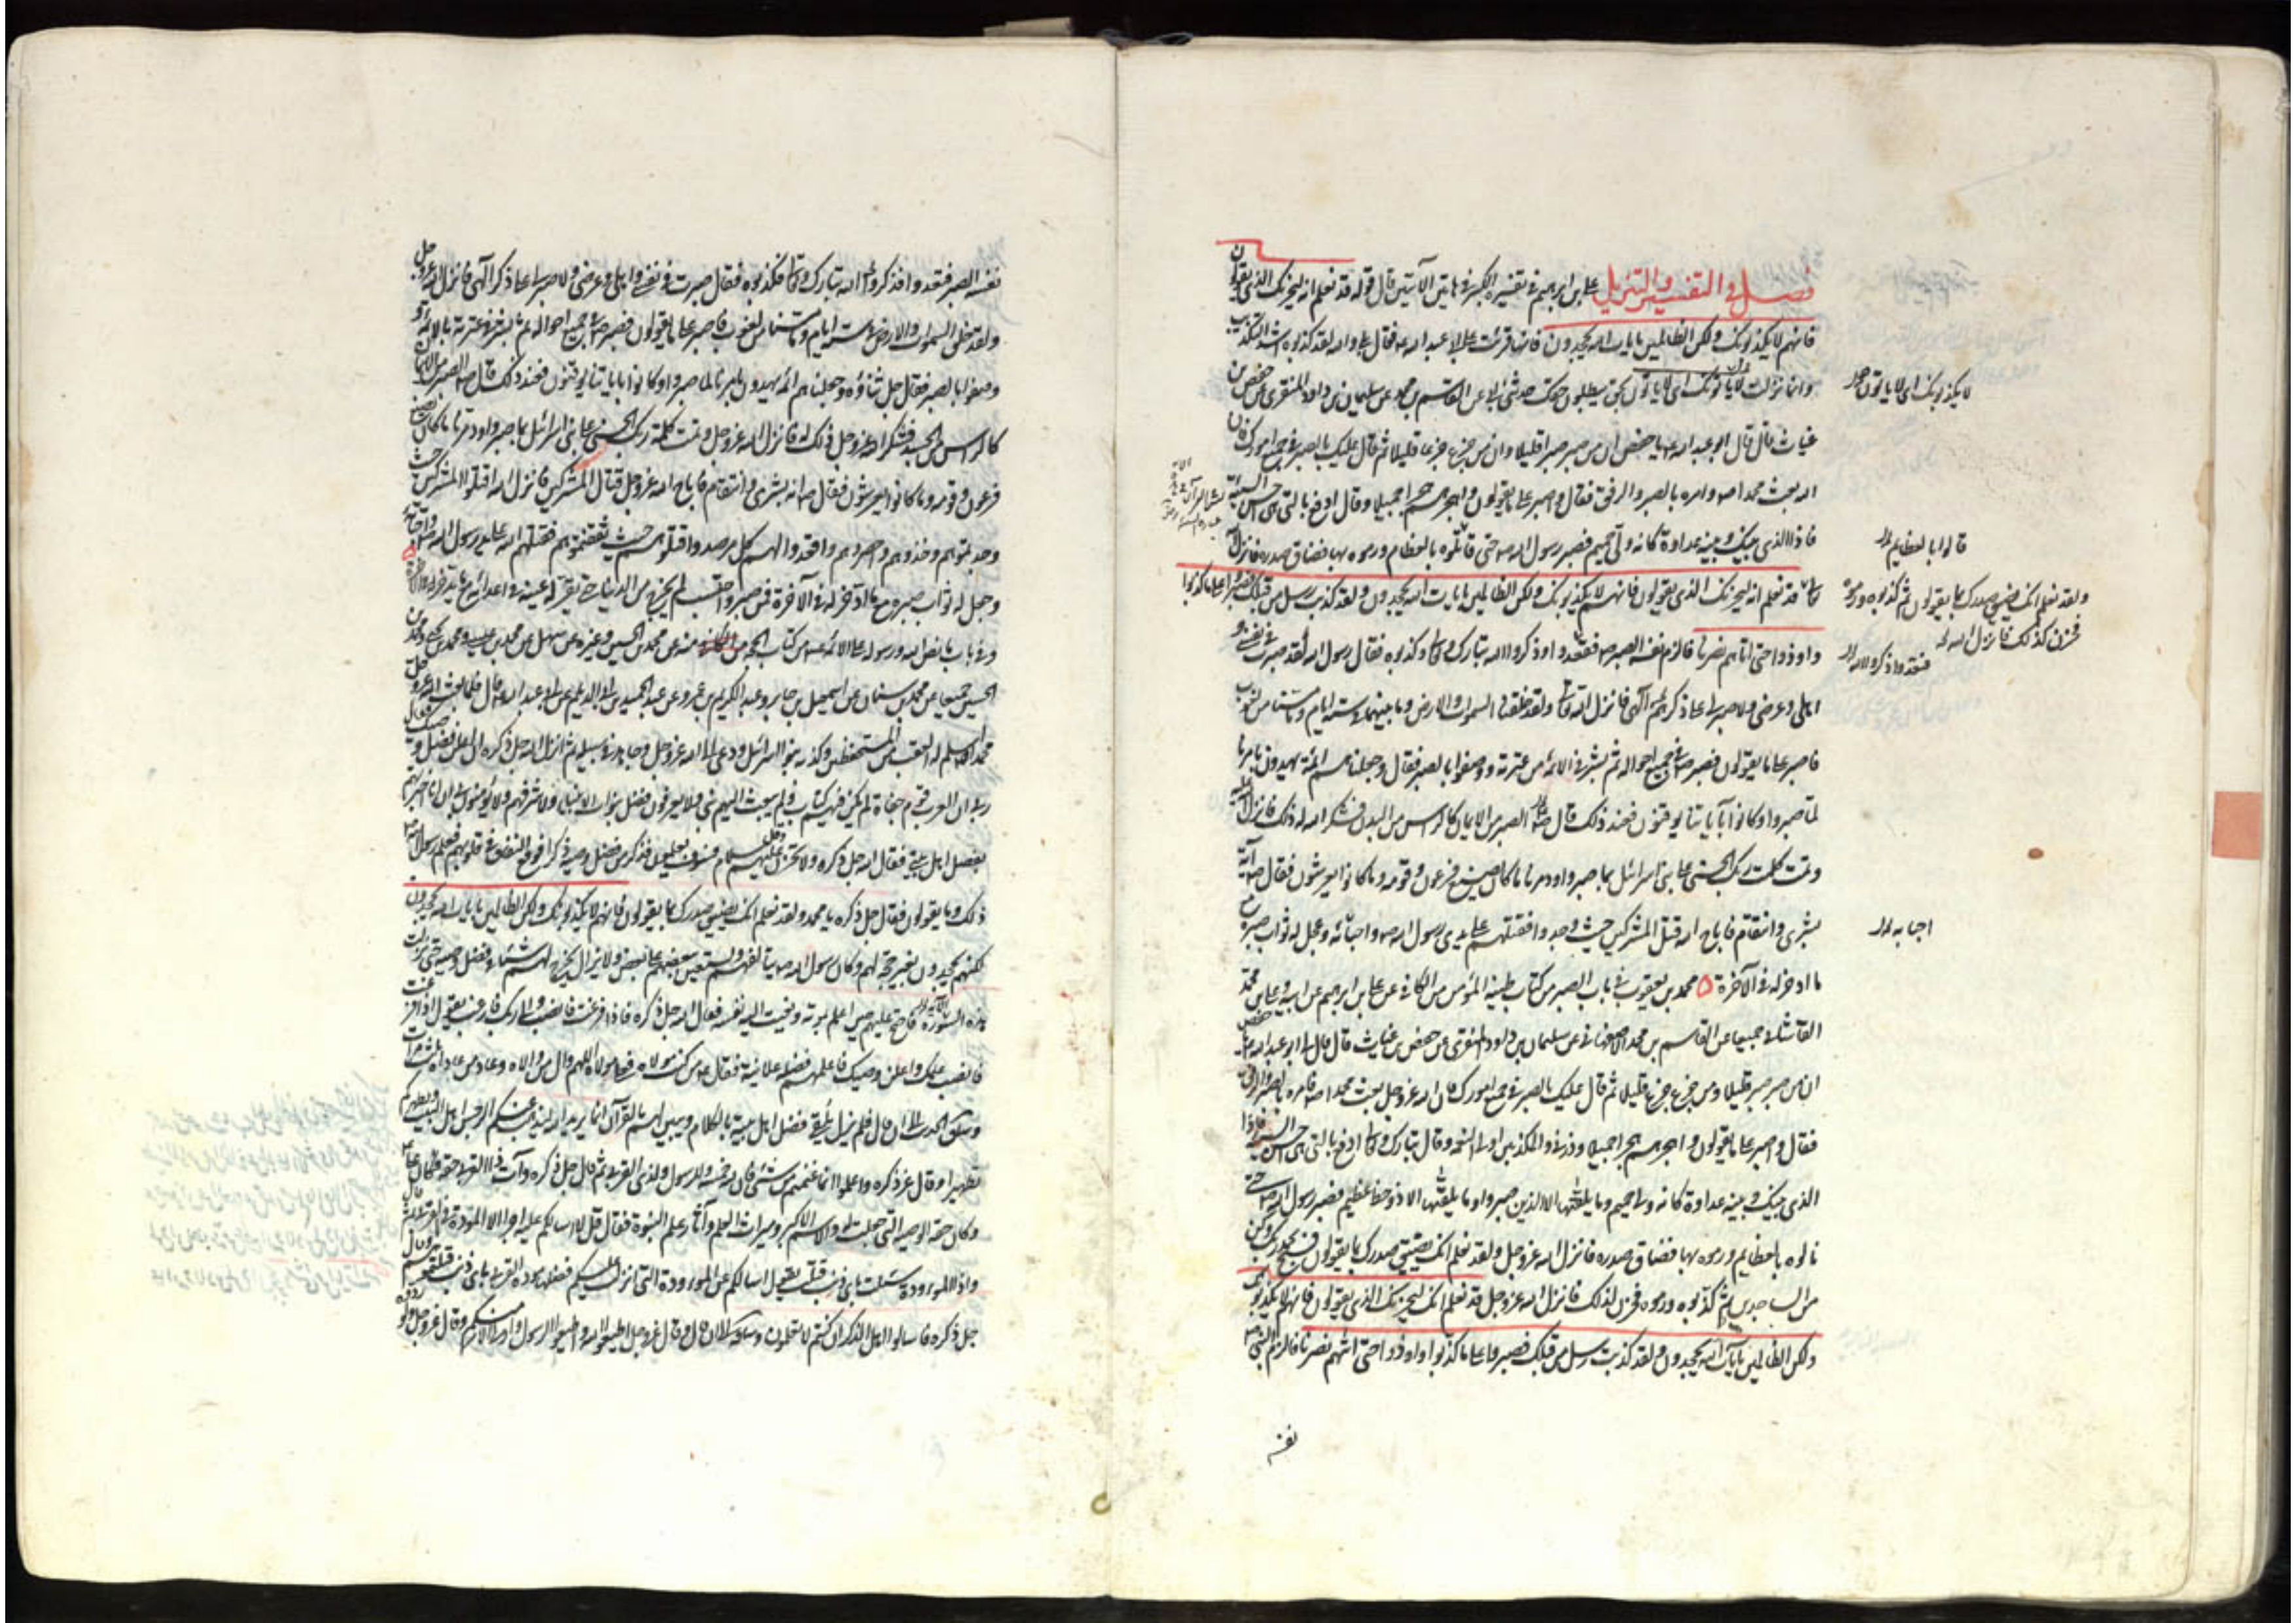 فصل في التفسير والتنزيل علي بن ابرهيم في تفسيره الكبير في هاتين الآيتين قال قوله قد نعلم انه ليحزنك الذي يقولون
فانهم لا يكذبونك ولكن الظالمين بايات الله يجحدون فانها قرئت على ابي عبد الله ع فقال بلى والله لقد كذبوه اشد التكذيب
وانما نزلت لا ياتونك اي لا ياتون بحق يبطلون حقك حدثني ابي عن القاسم بن محمد عن سليمان بن داود المنقري عن حفص بن
غياث قال قال ابو عبد الله ع يا حفص ان من صبر صبر قليلا وان من جزع جزع قليلا ثم قال عليك بالصبر في جميع امورك فان
الله بعث محمدا ص وامره بالصبر والرفق فقال واصبر على ما يقولون واهجرهم هجرا جميلا وقال ادفع بالتي هي احسن السيئة
فاذا الذي بينك وبينه عداوة كانه ولي حميم فصبر رسول الله ص حتى قابلوه بالعظام ورموه بها فضاق صدره فانزل الله
تعالى قد نعلم انه ليحزنك الذي يقولون فانهم لا يكذبونك ولكن الظالمين بايات الله يجحدون ولقد كذبت رسل من قبلك فصبروا على ما كذبوا
واوذوا حتى اتاهم نصرنا فالزم نفسه الصبر ص فقعدوا وذكروا الله تبارك وتعالى وكذبوه فقال رسول الله لقد صبرت في نفسي و
اهلي وعرضي ولا صبر لي على ذكرهم الهي فانزل الله تعالى ولقد خلقنا السموات والارض وما بينهما في ستة ايام وما مسنا من لغوب
فاصبر على ما يقولون فصبر ص في جميع احواله ثم بشر في الائمة من عترته ووصفوا بالصبر فقال وجعلنا هم ائمة يهدون بامرنا
لما صبروا وكانوا بآياتنا يوقنون فعند ذلك قال ص الصبر من الايمان كالراس من البدن فشكر الله له ذلك فانزل الله عليه
وتمت كلمت ربك الحسنى على بني اسرائل بما صبروا ودمرنا ما كان يصنع فرعون وقومه وما كانوا يعرشون فقال ص آية
بشرى وانتقام فاباح الله قتل المشركين حيث وجدوا فقتلهم على يدي رسول الله ص واحبائه وعجل له ثواب صبره مع
ما ادخر له في الآخرة ۵ محمد بن يعقوب في باب الصبر من كتاب طينة المؤمن من الكافي عن علي بن ابرهيم عن ابيه وعلي بن محمد
القاشاني جميعا عن القاسم بن محمد الاصفهاني عن سليمان بن داود المنقري عن حفص بن غياث قال قال لي ابو عبد الله ع يا حفص
ان من صبر صبر قليلا ومن جزع جزع قليلا ثم قال عليك بالصبر في جميع امورك فان الله عز وجل بعث محمدا ص فامره بالصبر والرفق
فقال واصبر على ما يقولون واهجرهم هجرا جميلا وذرني والمكذبين اولي النعمة وقال تبارك وتعالى ادفع بالتي هي احسن السيئة فاذا
الذي بينك وبينه عداوة كانه ولي حميم وما يلقيها الا الذين صبروا وما يلقيها الا ذو حظ عظيم فصبر رسول الله ص حتى
نالوه بالعظايم ورموه بها فضاق صدره فانزل الله عز وجل ولقد نعلم انك يضيق صدرك بما يقولون فسبح بحمد ربك وكن
من الساجدين ثم كذبوه ورموه فحزن لذلك فانزل الله عز وجل قد نعلم انك ليحزنك الذي يقولون فانهم لا يكذبونك
ولكن الظالمين بآيات الله يجحدون ولقد كذبت رسل من قبلك فصبروا على ما كذبوا واوذوا حتى اتيهم نصرنا فالزم النبي ص
نفسه
لا يكذبونك اي لا ياتون
قالوا بالعظايم
ولقد نعلم انك يضيق صدرك بما يقولون ثم كذبوه ورموه
فحزن كذلك فانزل الله
فقعدوا وذكروا الله
احبابه
نفسه الصبر فتعدوا فذكروا الله تبارك وتعالى فكذبوه فقال صبرت في نفسي واهلي وعرضي ولا صبر لي على ذكر الهي فانزل الله عز وجل
ولقد خلقنا السموات والارض في ستة ايام وما مسنا من لغوب فاصبر على ما يقولون فصبر ص في جميع احواله ثم بشر في عترته بالائمة و
وصفوا بالصبر فقال جل ثناؤه وجعلنا هم ائمة يهدون بامرنا لما صبروا وكانوا باياتنا يوقنون فعند ذلك قال ص الصبر من الايمان
كالراس من الجسد فشكر الله عز وجل ذلك له فانزل الله عز وجل وتمت كلمة ربك الحسنى على بني اسرائل بما صبروا ودمرنا ما كان يصنع
فرعون وقومه وما كانوا يعرشون فقال ص انه بشرى وانتقام فاباح الله عز وجل قتال المشركين فانزل الله اقتلوا المشركين حيث
وجدتموهم وخذوهم واحصروهم واقعدوا لهم كل مرصد واقتلوهم حيث ثقفتموهم فقتلهم الله على يدي رسول الله ص واحبائه
وجعل له ثواب صبره مع ما ادخر له في الآخرة فمن صبر واحتسب لم يخرج من الدنيا حتى يقر له عينه في اعدائه مع ما يدخر له في الآخرة ۵
وفي باب ما نص الله ورسوله على الائمة ع من كتاب الحجة من الكافي منه عن محمد بن الحسين وغيره عن سهل عن محمد بن عيسى ومحمد بن يحيى ومحمد بن
الحسين جميعا عن محمد بن سنان عن اسمعيل بن جابر وعبد الكريم بن عمرو عن عبد الحميد بن ابي الديلم عن ابي عبد الله قال فلما بعث الله عز وجل
محمدا ص اسلم له العقب من المستحفظين وكذبه بنو اسرائل ودعى الى الله عز وجل وجاهد في سبيله ثم انزل الله جل ذكره ان اعلن فضل وصيك فقال
رب ان العرب قوم جفاة لم يكن فيهم كتاب ولم يبعث اليهم نبي ولا يعرفون فضل نبوات الانبياء ولا شرفهم ولا يؤمنون بي ان انا اخبرتهم
بفضل اهل بيتي فقال الله جل ذكره ولا تحزن عليهم وقل سلام فسوف يعلمون فذكر من فضل وصيه ذكرا فوقع النفاق في قلوبهم فعلم رسول الله ص
ذلك وما يقولون فقال جل ذكره يا محمد ولقد نعلم انك يضيق صدرك بما يقولون فانهم لا يكذبونك ولكن الظالمين بايات الله يجحدون
لكنهم يجحدون بغير حجة لهم وكان رسول الله ص يتالفهم ويستعين ببعضهم على بعض ولا يزال يخرج لهم شيئا في فضل وصيه حتى نزلت
هذه السورة فاحتج عليهم حين اعلم بموته ونعيت اليه نفسه فقال الله جل ذكره فاذا فرغت فانصب والى ربك فارغب يقول اذا فرغت
فانصب علمك واعلن وصيك فاعلمهم فضله علانية فقال ع من كنت مولاه فعلي مولاه اللهم وال من والاه وعاد من عاداه ثلث مرات
وساق الحديث الى ان قال فلم يزل يلقي فضل اهل بيته بالكلام ويبين لهم بالقرآن انما يريد الله ليذهب عنكم الرجس اهل البيت ويطهركم
تطهيرا وقال عز ذكره واعلموا انما غنمتم من شئ فان لله خمسه وللرسول ولذي القربى ثم قال جل ذكره وآت ذا القربى حقه فكان علي ع
وكان حقه الوصية التي جعلت له والاسم الاكبر وميراث العلم وآثار علم النبوة فقال قل لا اسالكم عليه اجرا الا المودة في القربى ثم قال
واذا المودودة سئلت باي ذنب قتلت يقول اسالكم عن المودودة التي انزلت عليكم فضلها مودة القربى باي ذنب قتلتموهم وقال
جل ذكره فاسالوا اهل الذكر ان كنتم لا تعلمون وساق الى ان قال وقال عز وجل اطيعوا الله واطيعوا الرسول واولي الامر منكم وقال عز وجل ولو ردوه